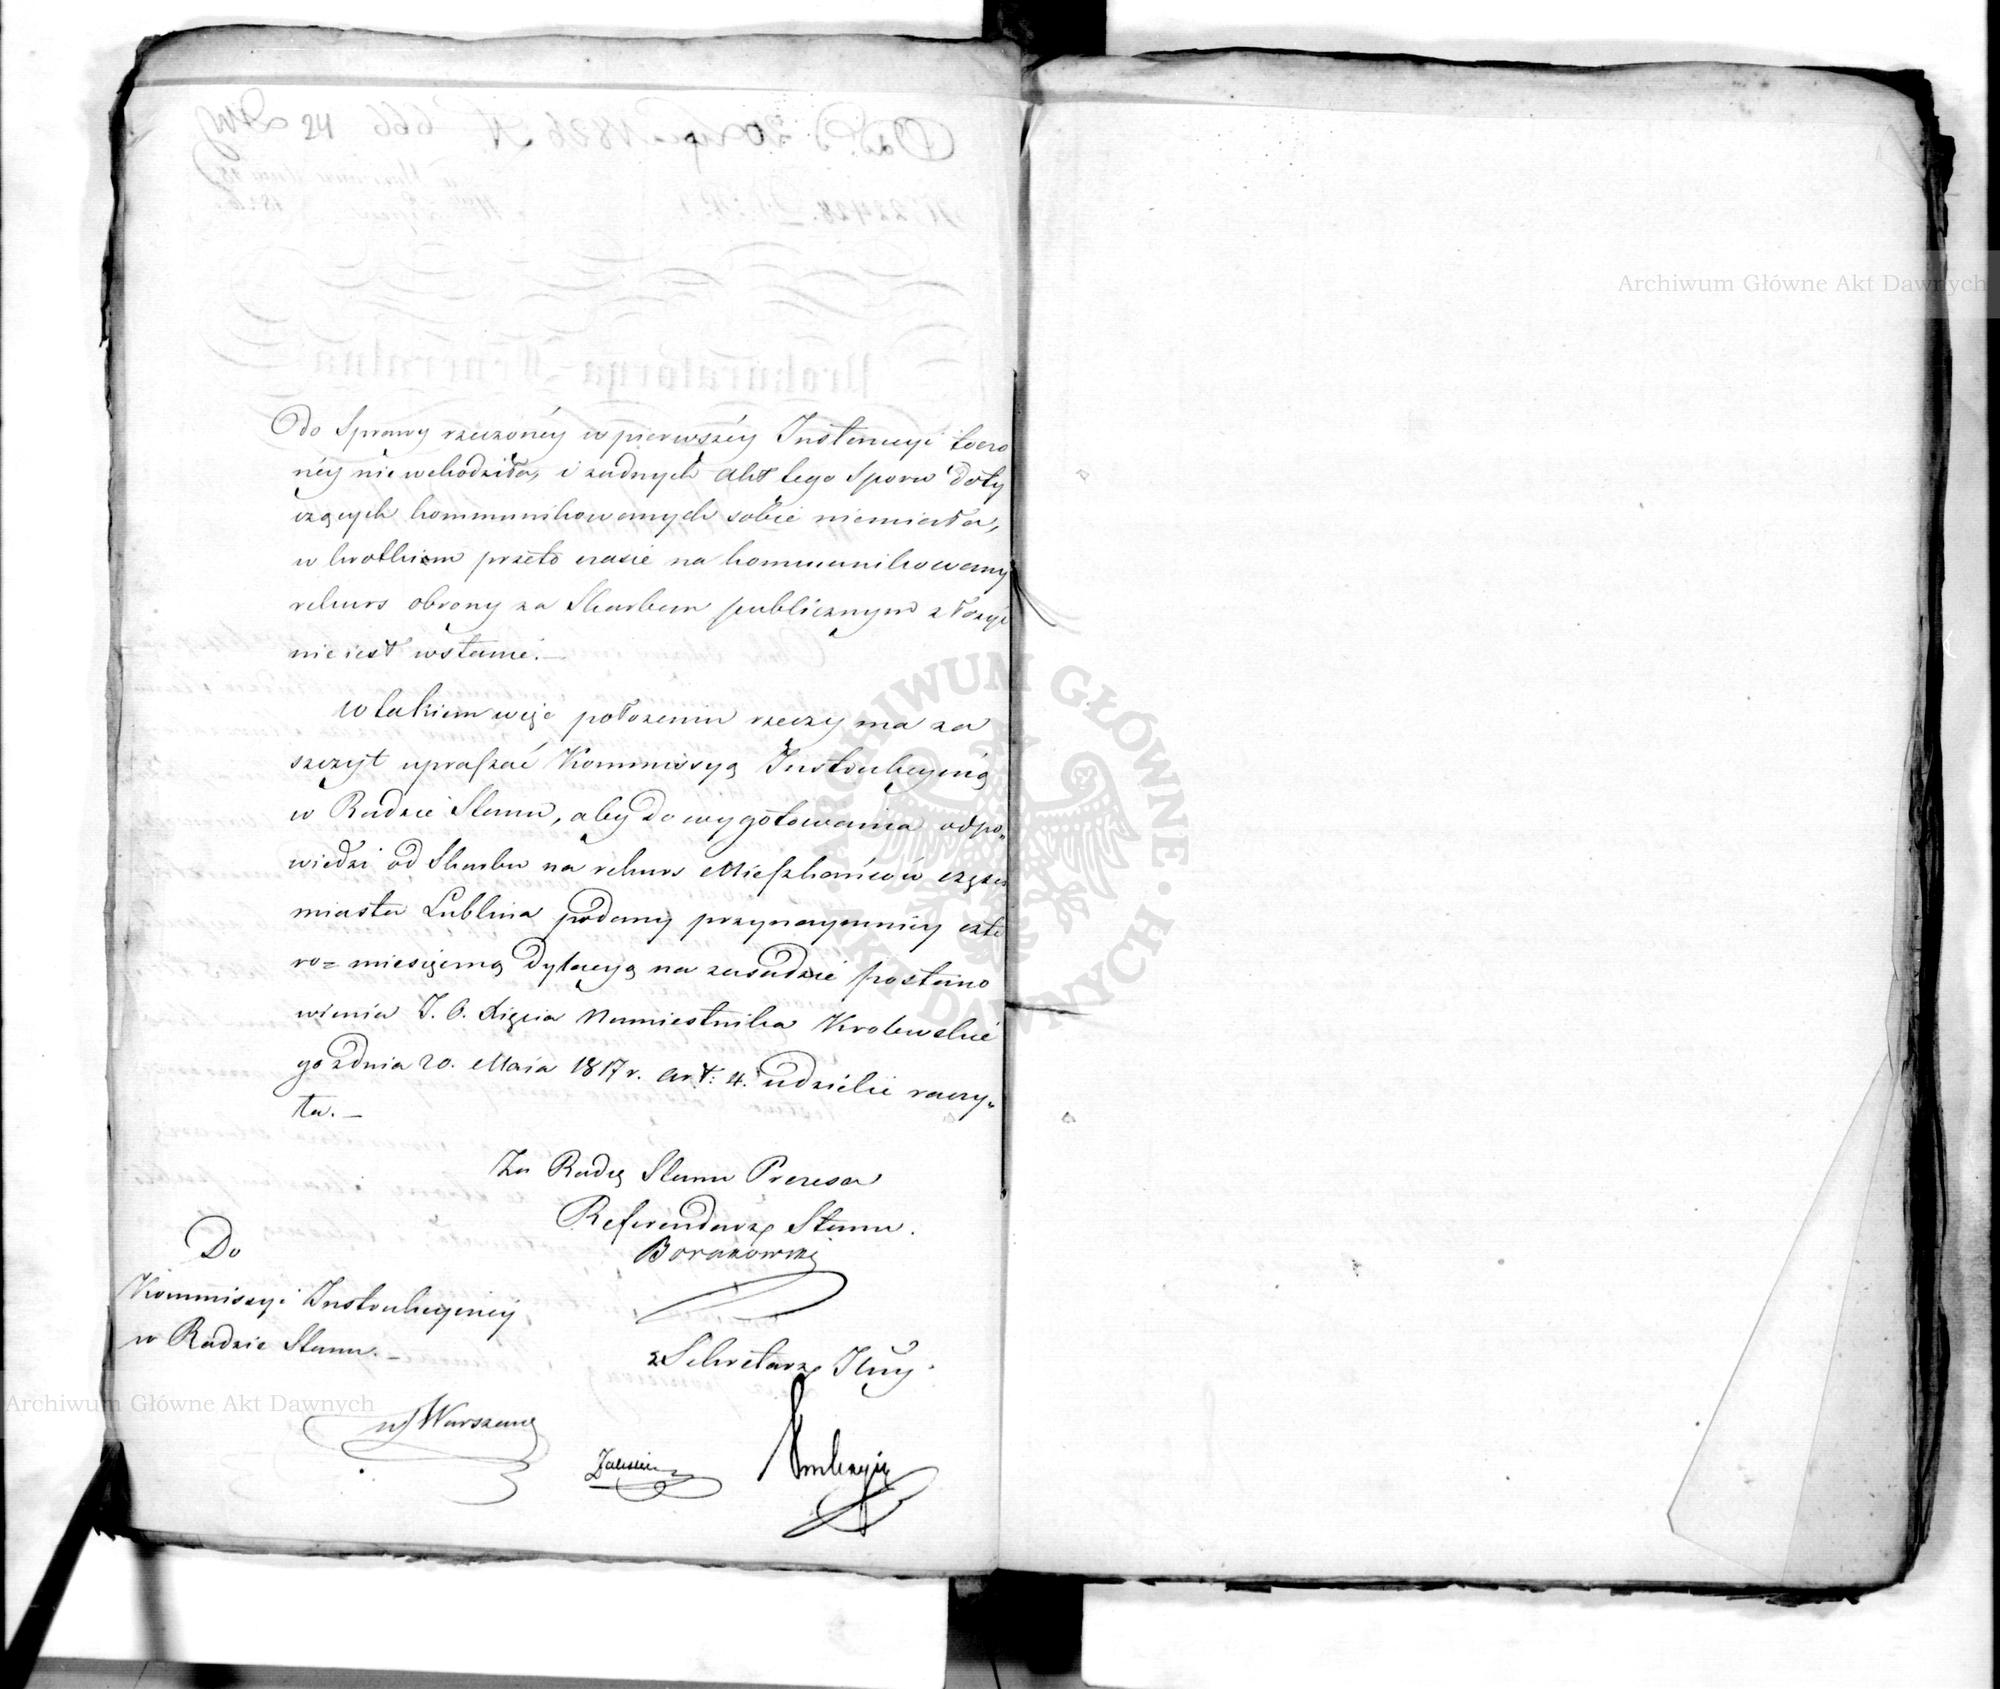 24
do Sprawy rzeczonéy w pierwszéy Instancyi toczo
néy niewchodziła, i żadnych akt tego Sporu doty
czących kommunikowanych sobie niemiała,
w krotkiem przeto czasie na kommunikowany
rekurs obrony za Skarbem publicznym złożyć
nieiest wstanie. —
W takiem więc położeniu rzeczy ma za
szczyt upraszać Kommissyą Instrukcyiną
w Radzie Stanu, aby do wygotowania odpo„
wiedzi od Skarbu na rekurs Mieszkańców części
miasta Lublina podany przynaymniey czte
ro= miesięczną Dylacyą na zasadzie postano
wienia J. O. Xięcia Namiestnika Krolewskie
go zdnia 20. Maia 1817 r. art: 4. udzielić raczy„
ła. —
Za Radcę Stanu Prezesa
Referendarz Stanu.
Borakowski
Do
Kommissyi Instrukcyiney
w Radzie Stanu. —
w Warszawie
z Sekretarz Jlny.
Archiwum Główne Akt Dawnych
Archiwum Główne Akt Dawnych
ARCHIWUM GŁÓWNE · AKT DAWNYCH ·